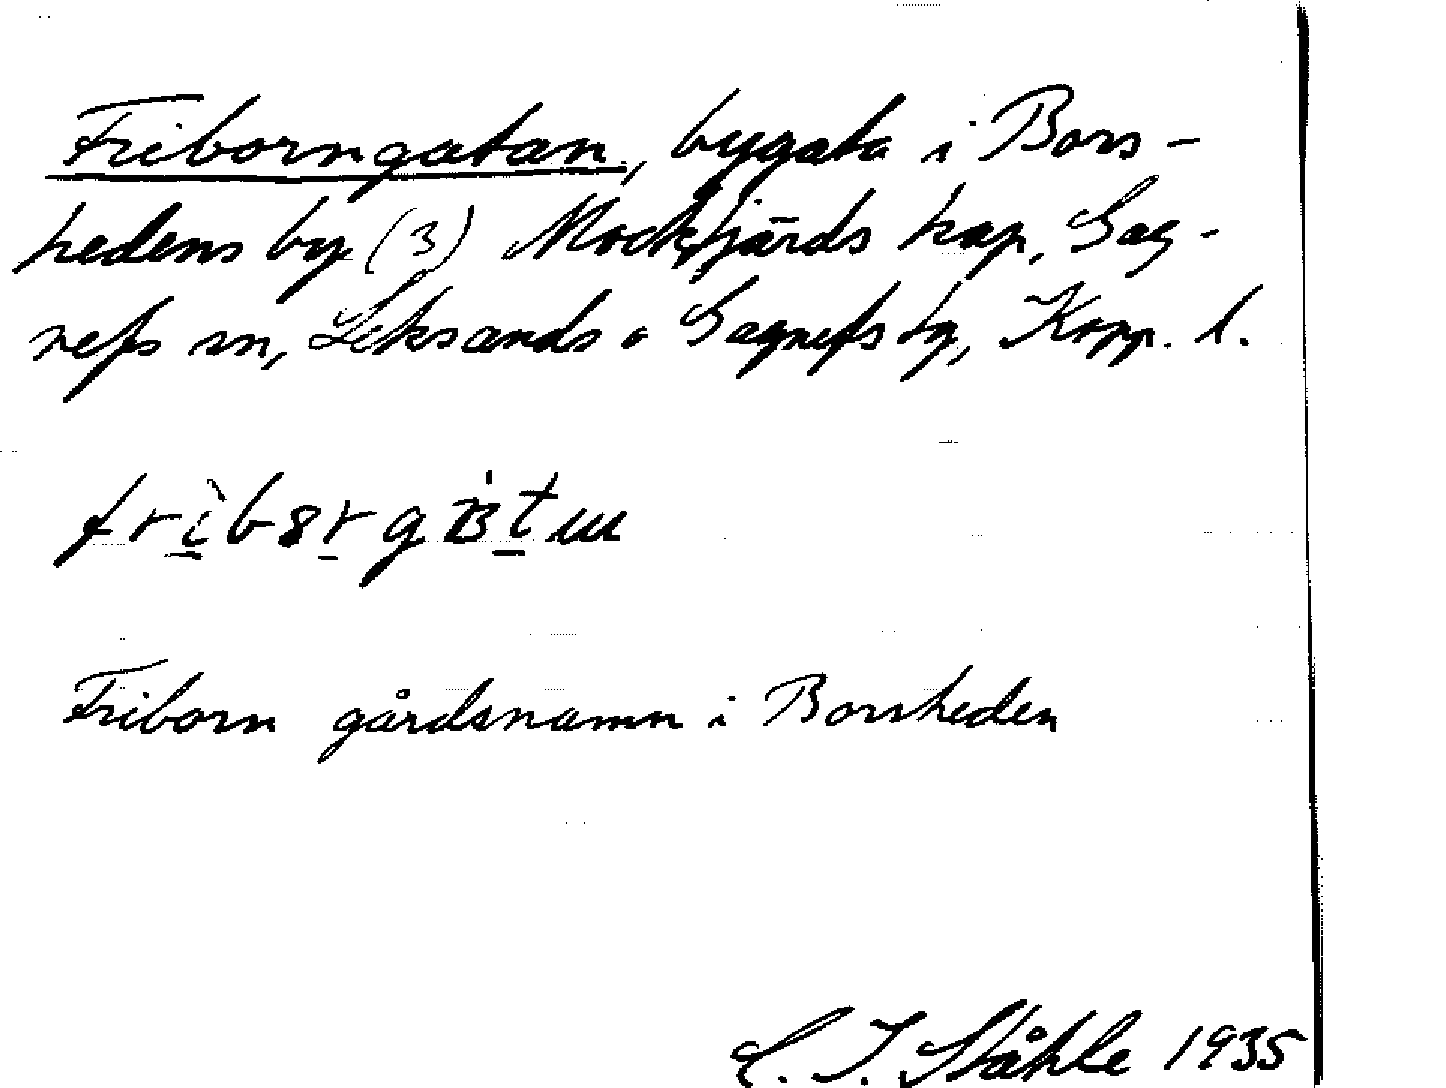 Friborngatan, bygata i Bors-
hedens by (3) Mockfjärds kap, Gag-
nefs sn, Leksands o Gagnefs tg, Kopp. l.
Friborn gårdsnamn i Borsheden
C. I. Ståhle 1935